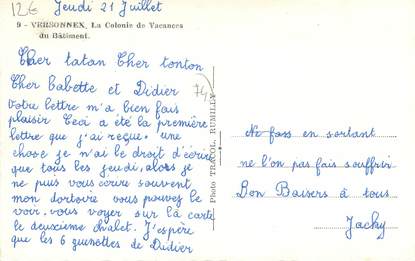 12€
Jeudi 21 Juillet
9 - VERSONNEX. La Colonie de Vacances
du Bâtiment.
Cher tatan Cher tonton
Cher Babette et Didier
Votre lettre m'a bien fais
plaisir Ceci a été la première
lettre que j'ai reçue. une
chose je n'ai le droit d'écrire
que tous les jeudi, alors je
ne puis vous écrire souvent
mon dortoire vous pouvez le
voir, vous voyer sur la carte
le deuxième chalet. J'espère
que les 6 quenottes de Didier
74
Photo TRACOL, RUMILLY
Ne fass en sortant
ne l'on pas fais souffrir
Bon Baisers à tous
Jacky